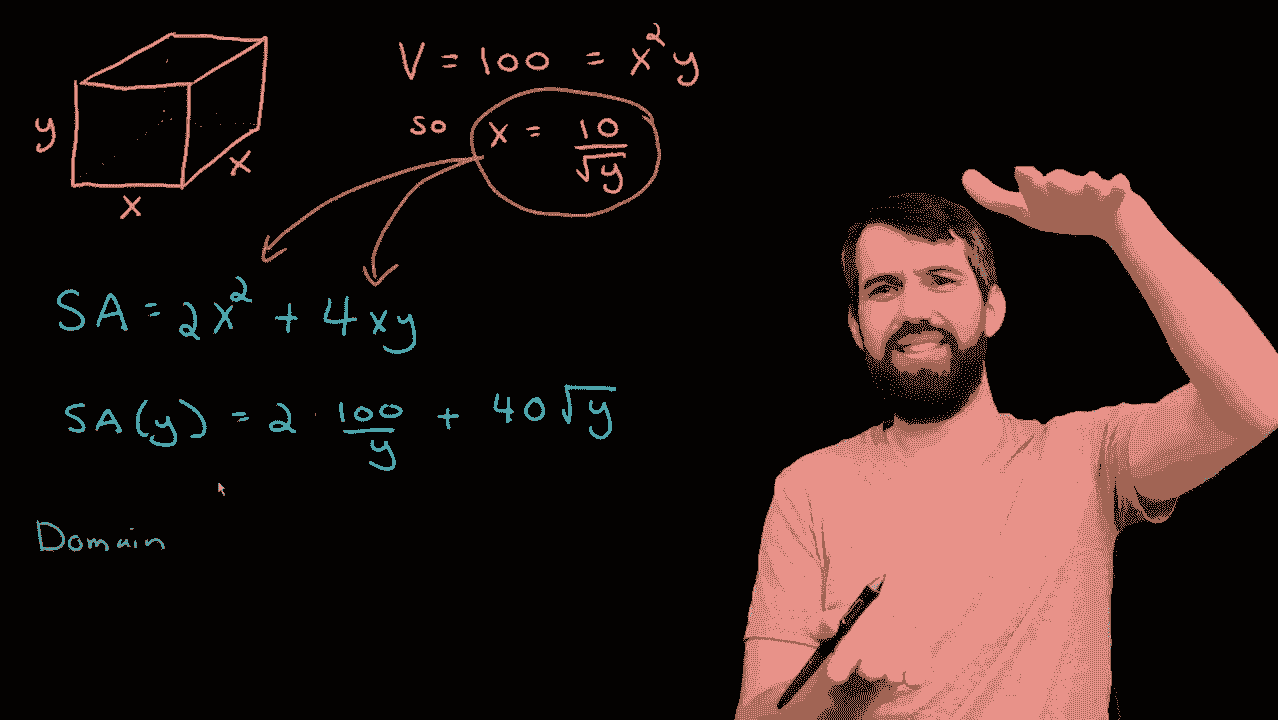 V = 100 = x²y
y
so x = 10/√y
x
x
SA = 2x² + 4xy
SA(y) = 2 · 100/y + 40√y
Domain